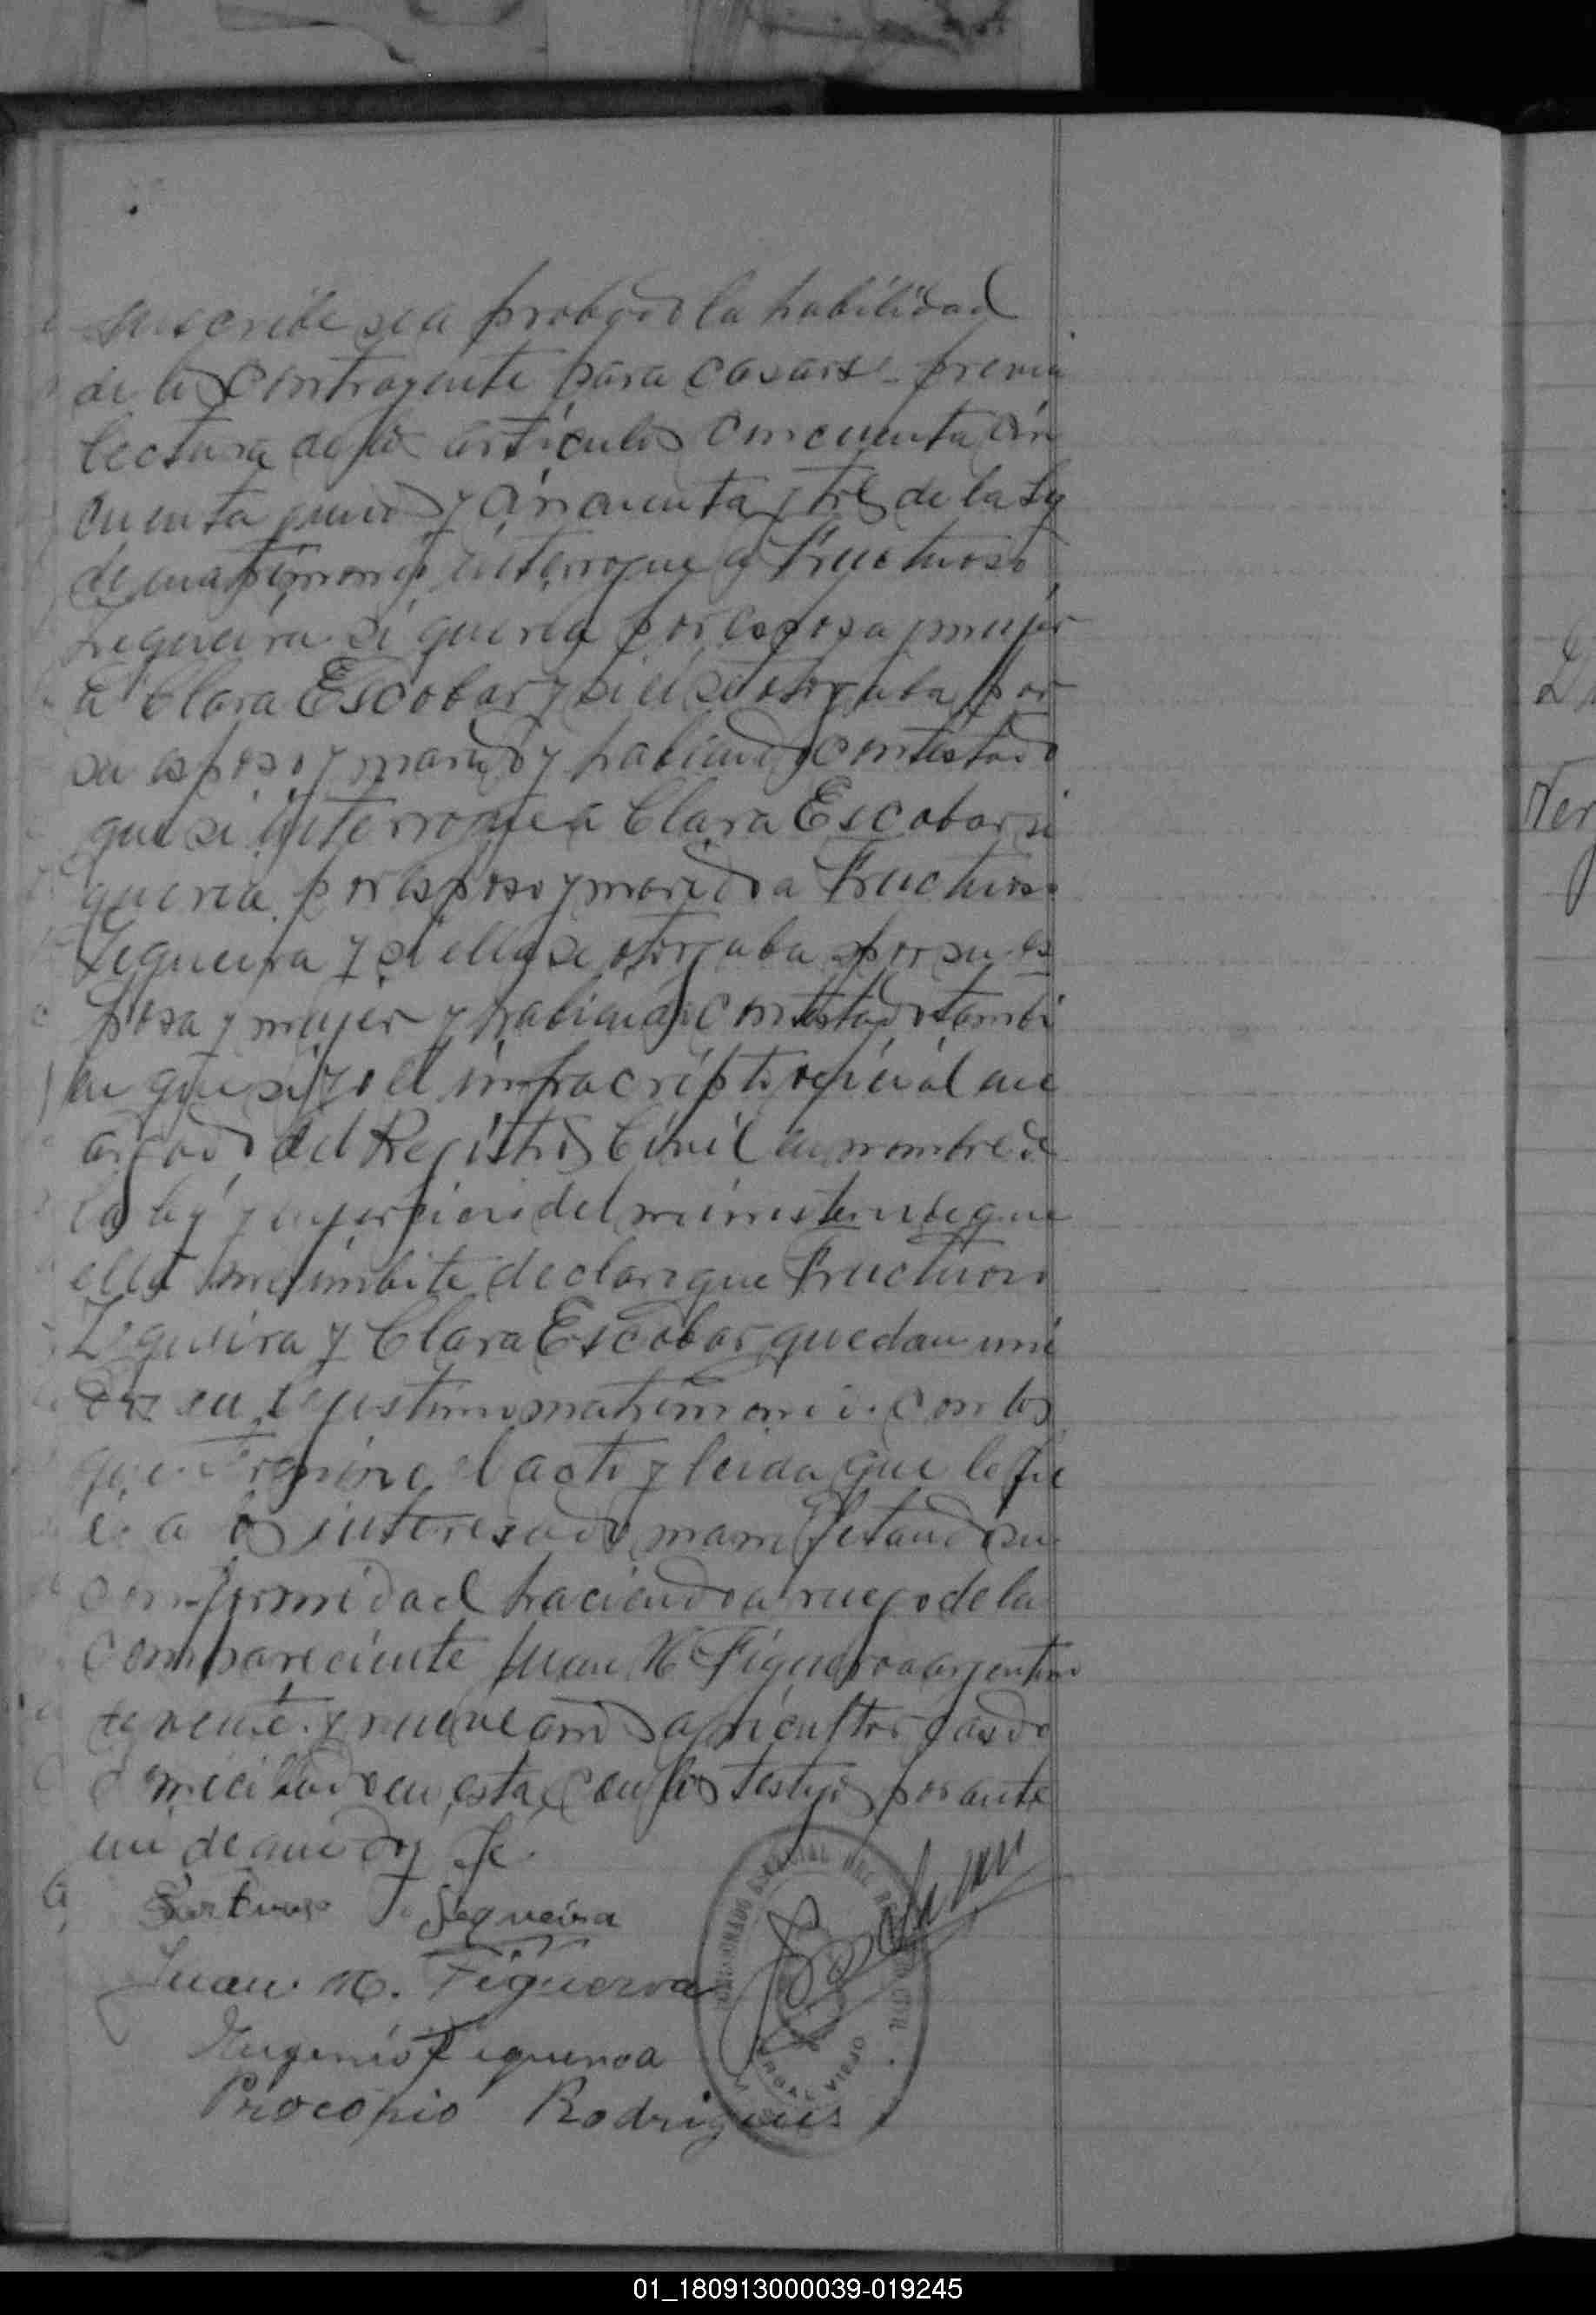 suscribe se a probado la habilidad
de los contrayente para casarse previa
lectura de los articulos cincuenta cin
cuenta y uno y cincuenta y tres de la Ley
de matrimonio interrogue a Fructuoso
Zequeira si queria por esposa y mujer
a Clara Escobar y si el se otorgaba por
su esposo y marido y habiendo contestado
que si interrogue a Clara Escobar si
queria por esposo y marido a Fructuoso
Zequeira y si ella se otorgaba por su es
posa y mujer y habiendo contestado tambi
en que si yo el infracripto oficial en
argado del Registro Civil en nombre de
la ley y en ejercicio del ministerio de que
ella me imbite declare que Fructuoso
Zequeira y Clara Escobar quedan uni
dos en legistimo matrimonio. con los
que termine el acto y leida que le fu
é a los interesado manifetando su
comformidad haciendo a ruego de la
compareciente Juan M Figueroa argentino
de veinte y nueve años agricultor casado
domiciliado en esta, con los testigos por ante
mi de que doy fe.
Fructuoso Sequeira
Juan M. Figueroa
Eugenio Figueroa
Procopio Rodrigues
VIEJO
Ler
01_180913000039-019245